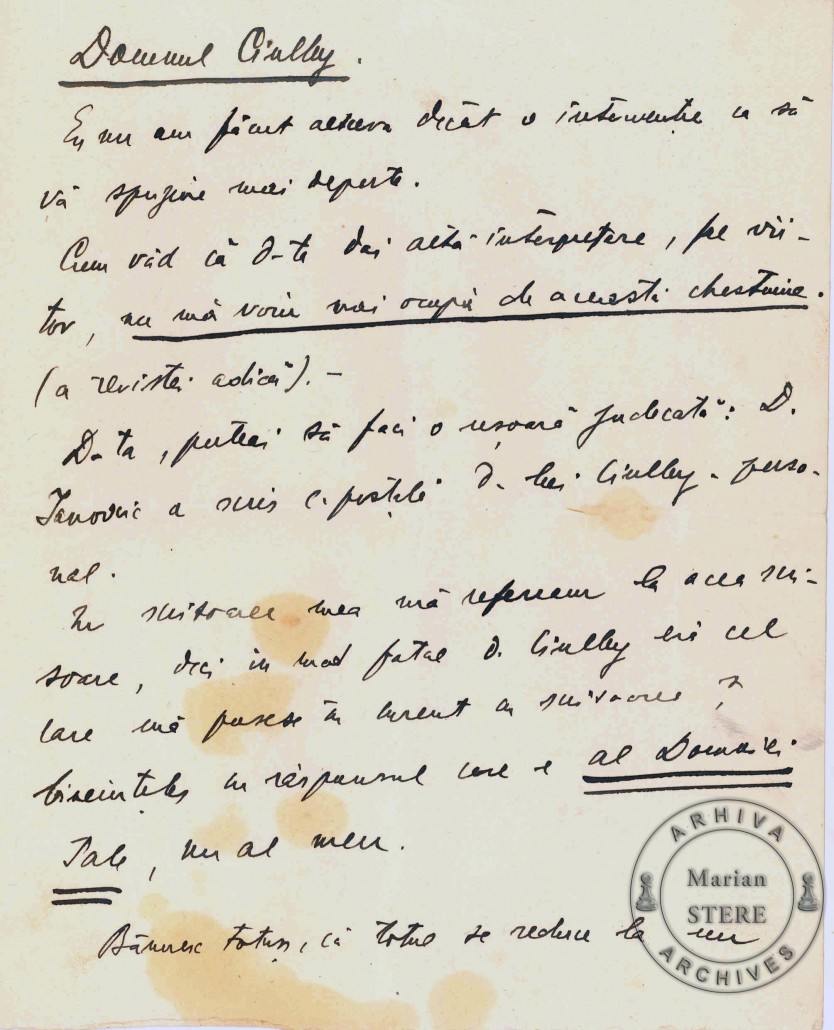 Domnul Ciulley.
Eu nu am făcut altceva decât o intervenție ca să
vă spijine mai departe.
Cum văd că d-ta dai altă interpretare, pe vii-
tor, nu mă voiu mai ocupă de această chestiune.
(a revistei adică). -
D-ta, puteai să faci o ușoară judecată: D.
Ianovcic a scris c. poștală d-lui Ciulley - perso-
nal.
In scrisoarea mea mă refeream la acea scri-
soare, deci in mod fatal d. Ciulley eră cel
care mă pusese în curent cu scrisoarea și
bineînțeles cu răspunsul care e al Domniei
Tale, nu al meu.
Bănuesc totuși, că totul se reduce la un
ARHIVA
Marian
STERE
ARCHIVES